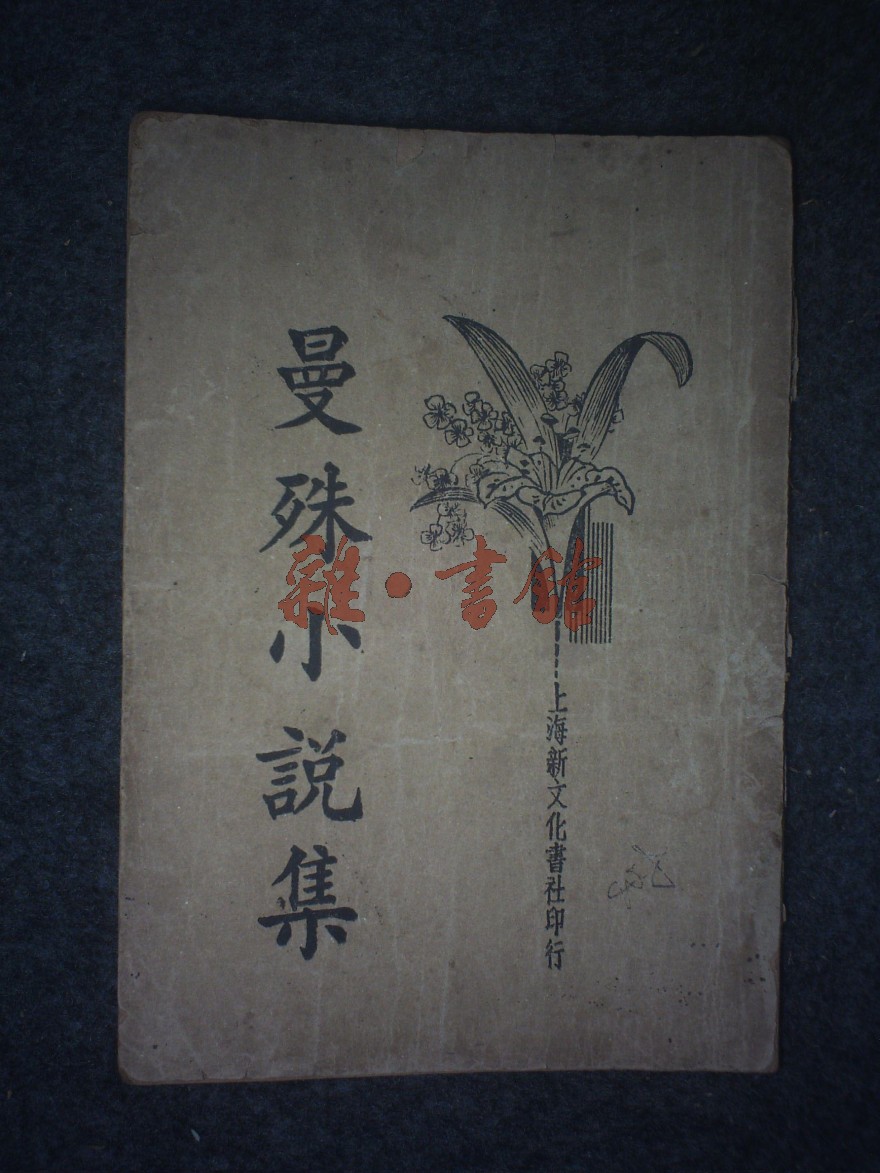 曼殊小説集
上海新文化書社印行
雜·書館